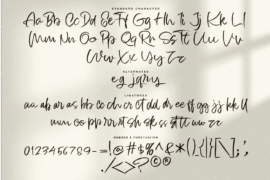 STANDARD CHARACTER
Aa Bb Cc Dd Ee Ff Gg Hh Ii Jj Kk Ll
Mm Nn Oo Pp Qq Rr Ss Tt Uu Vv
Ww Xx Yy Zz
ALTERNATES
eg jqry
LIGATURES
aa ab ar as bb cc ch cr ct dd dr ee ff gg jj kk ll
mm oo pp rr rt sh sk ss tt uu zz
NUMBER & PUNCTUATION
0123456789-=!@#%^&*(){}[];',
./<>?©®